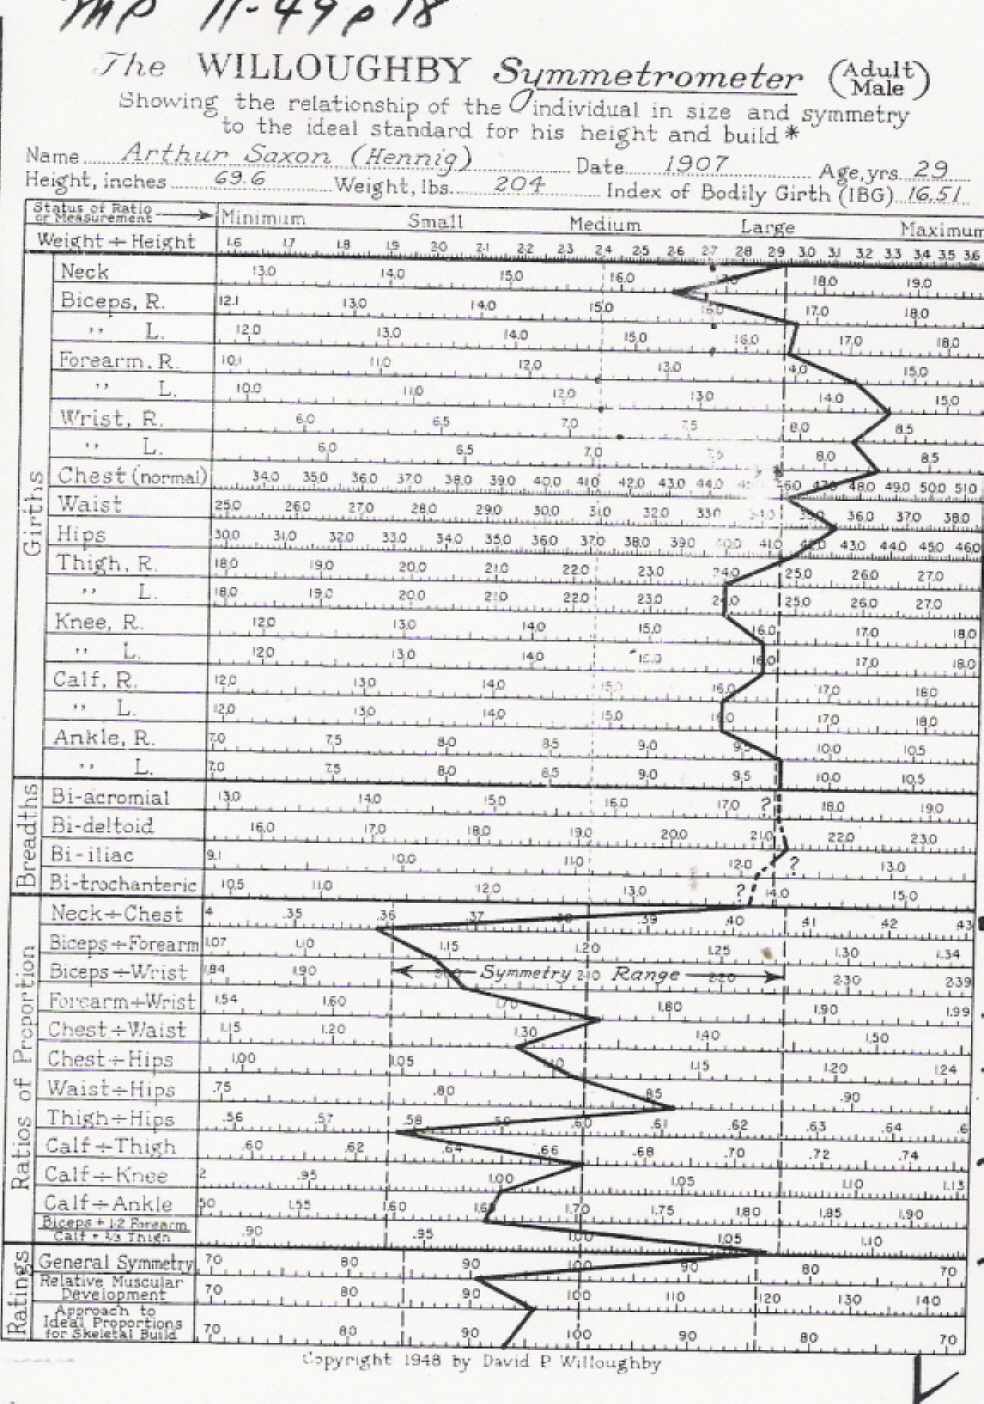 MP 11-49 p 18
The WILLOUGHBY Symmetrometer (Adult Male)
Showing the relationship of the individual in size and symmetry
to the ideal standard for his height and build*
Name Arthur Saxon (Hennig) Date 1907 Age, yrs. 29
Height, inches 69.6 Weight, lbs. 204 Index of Bodily Girth (IBG) 16.51
Status of Ratio or Measurement Minimum Small Medium Large Maximum
Weight ÷ Height 1.6 1.7 1.8 1.9 2.0 2.1 2.2 2.3 2.4 2.5 2.6 2.7 2.8 2.9 3.0 3.1 3.2 3.3 3.4 3.5 3.6
Girths
Neck 13.0 14.0 15.0 16.0 18.0 19.0
Biceps, R. 12.1 13.0 14.0 15.0 16.0 17.0 18.0
" L. 12.0 13.0 14.0 15.0 16.0 17.0 18.0
Forearm, R. 10.1 11.0 12.0 13.0 4.0 15.0
" L. 10.0 11.0 12.0 13.0 14.0 15.0
Wrist, R. 6.0 6.5 7.0 7.5 8.0 8.5
" L. 6.0 6.5 7.0 7.5 8.0 8.5
Chest (normal) 34.0 35.0 36.0 37.0 38.0 39.0 40.0 41.0 42.0 43.0 44.0 48.0 49.0 50.0 51.0
Waist 25.0 26.0 27.0 28.0 29.0 30.0 31.0 32.0 33.0 34.0 36.0 37.0 38.0
Hips 30.0 31.0 32.0 33.0 34.0 35.0 36.0 37.0 38.0 39.0 40.0 41.0 42.0 43.0 44.0 45.0 46.0
Thigh, R. 18.0 19.0 20.0 21.0 22.0 23.0 24.0 25.0 26.0 27.0
" L. 18.0 19.0 20.0 21.0 22.0 23.0 24.0 25.0 26.0 27.0
Knee, R. 12.0 13.0 14.0 15.0 16.0 17.0 18.0
" L. 12.0 13.0 14.0 15.0 16.0 17.0 18.0
Calf, R. 12.0 13.0 14.0 15.0 16.0 17.0 18.0
" L. 12.0 13.0 14.0 15.0 16.0 17.0 18.0
Ankle, R. 7.0 7.5 8.0 8.5 9.0 9.5 10.0 10.5
" L. 7.0 7.5 8.0 8.5 9.0 9.5 10.0 10.5
Breadths
Bi-acromial 13.0 14.0 15.0 16.0 17.0 ? 18.0 19.0
Bi-deltoid 16.0 17.0 18.0 19.0 20.0 21.0 22.0 23.0
Bi-iliac 9.1 10.0 11.0 12.0 ? 13.0
Bi-trochanteric 10.5 11.0 12.0 13.0 ? 14.0 15.0
Ratios of Proportion
Neck÷Chest 4 .35 .36 .37 .38 .39 .40 .41 .42 .43
Biceps÷Forearm 1.07 1.10 1.15 1.20 1.25 1.30 1.34
Biceps÷Wrist 1.84 1.90 2.00 Symmetry 2.10 Range 2.20 2.30 2.39
Forearm÷Wrist 1.54 1.60 1.70 1.80 1.90 1.99
Chest÷Waist 1.15 1.20 1.30 1.40 1.50
Chest÷Hips 1.00 1.05 1.10 1.15 1.20 1.24
Waist÷Hips .75 .80 .85 .90
Thigh÷Hips .56 .57 .58 .59 .60 .61 .62 .63 .64 .6
Calf÷Thigh .60 .62 .64 .66 .68 .70 .72 .74
Calf÷Knee 2 .95 1.00 1.05 1.10 1.13
Calf÷Ankle 50 1.55 1.60 1.65 1.70 1.75 1.80 1.85 1.90
Biceps + 1.2 Forearm
Calf + 2/3 Thigh .90 .95 1.00 1.05 1.10
Ratings
General Symmetry 70 80 90 100 90 80 70
Relative Muscular Development 70 80 90 100 110 120 130 140
Approach to Ideal Proportions for Skeletal Build 70 80 90 100 90 80 70
Copyright 1948 by David P. Willoughby